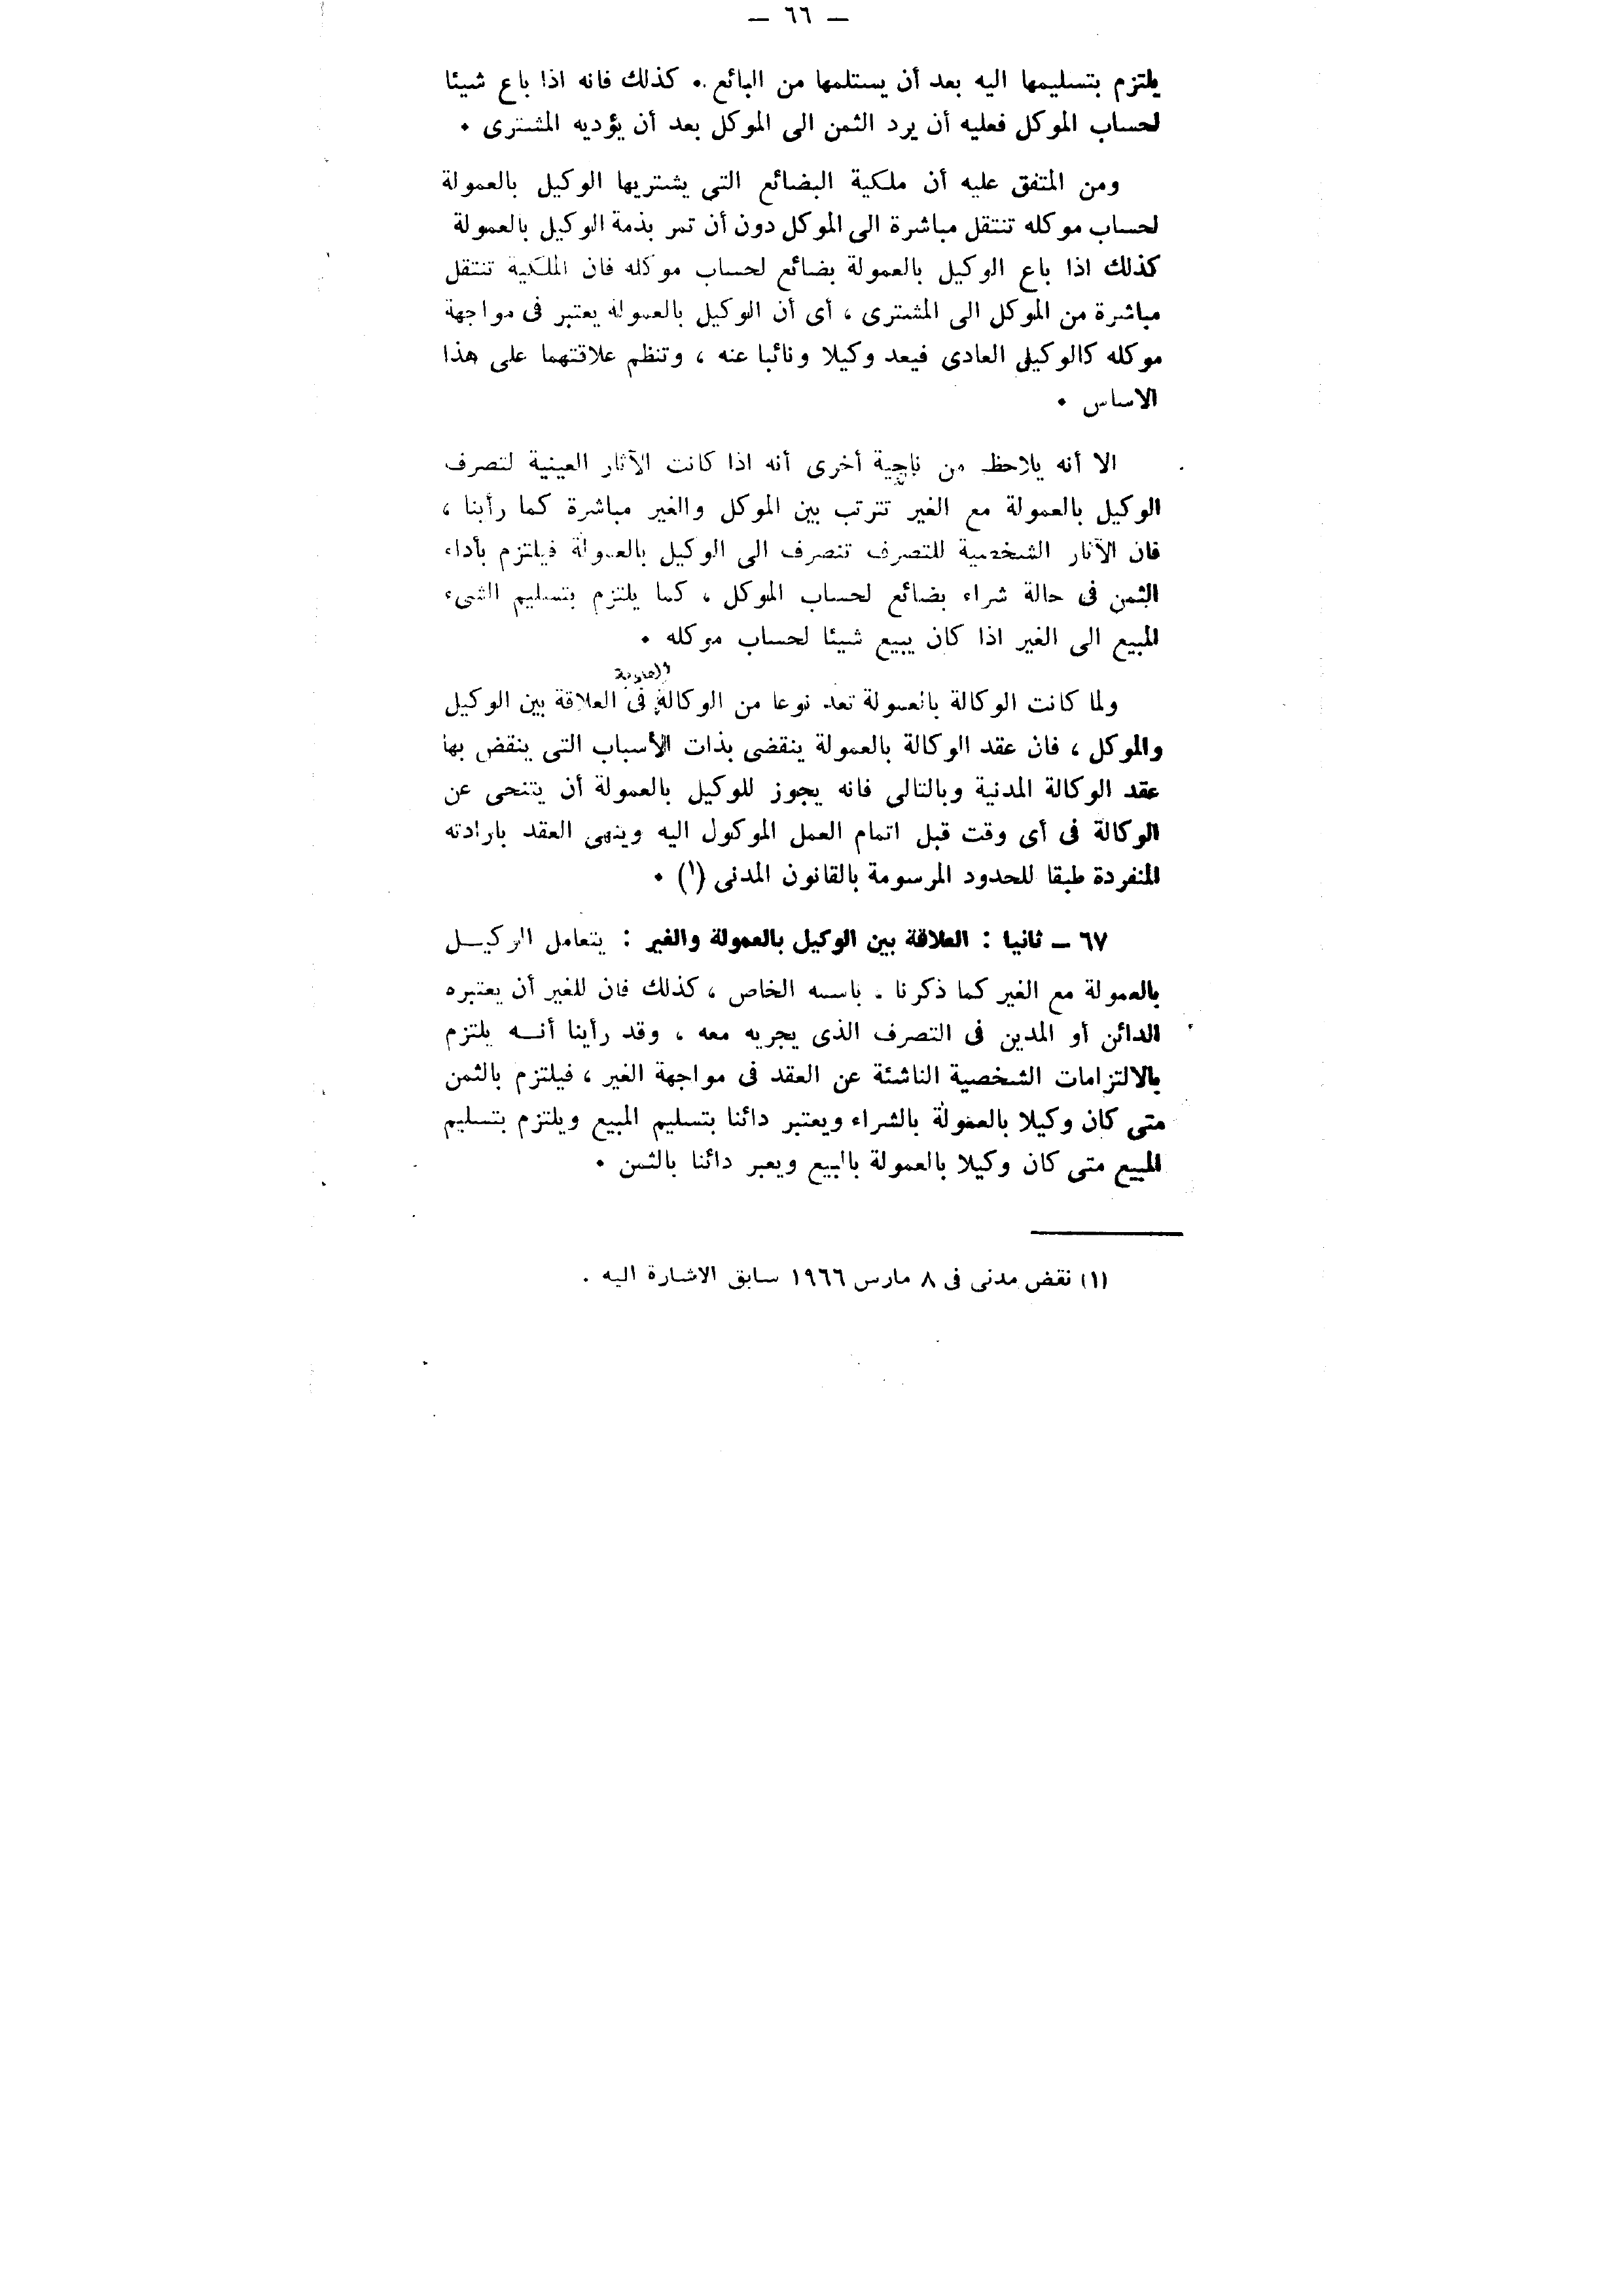 — ٦٦ —
يلتزم بتسليمها اليه بعد أن يستلمها من البائع . كذلك فانه اذا باع شيئا
لحساب الموكل فعليه أن يرد الثمن الى الموكل بعد أن يؤديه المشترى .
ومن المتفق عليه أن ملكية البضائع التى يشتريها الوكيل بالعمولة
لحساب موكله تنتقل مباشرة الى الموكل دون أن تمر بذمة الوكيل بالعمولة
كذلك اذا باع الوكيل بالعمولة بضائع لحساب موكله فان الملكية تنتقل
مباشرة من الموكل الى المشترى ، أى أن الوكيل بالعمولة يعتبر فى مواجهة
موكله كالوكيل العادى فيعد وكيلا ونائبا عنه ، وتنظم علاقتهما على هذا
الاساس .
الا أنه يلاحظ من ناحية أخرى أنه اذا كانت الآثار العينية لتصرف
الوكيل بالعمولة مع الغير تترتب بين الموكل والغير مباشرة كما رأينا ،
فان الآثار الشخصية للتصرف تنصرف الى الوكيل بالعمولة فيلتزم بأداء
الثمن فى حالة شراء بضائع لحساب الموكل ، كما يلتزم بتسليم الشىء
المبيع الى الغير اذا كان يبيع شيئا لحساب موكله .
ولما كانت الوكالة بالعمولة تعد نوعا من الوكالة فى العلاقة بين الوكيل
والموكل ، فان عقد الوكالة بالعمولة ينقضى بذات الأسباب التى ينقض بها
عقد الوكالة المدنية وبالتالى فانه يجوز للوكيل بالعمولة أن يتنحى عن
الوكالة فى أى وقت قبل اتمام العمل الموكول اليه وينهى العقد بارادته
المنفردة طبقا للحدود المرسومة بالقانون المدنى (١) .
٦٧ — ثانيا : العلاقة بين الوكيل بالعمولة والغير : يتعامل الوكيــل
بالعمولة مع الغير كما ذكرنا . باسمه الخاص ، كذلك فان للغير أن يعتبره
الدائن أو المدين فى التصرف الذى يجريه معه ، وقد رأينا أنــه يلتزم
بالالتزامات الشخصية الناشئة عن العقد فى مواجهة الغير ، فيلتزم بالثمن
متى كان وكيلا بالعمولة بالشراء ويعتبر دائنا بتسليم المبيع ويلتزم بتسليم
المبيع متى كان وكيلا بالعمولة بالبيع ويعبر دائنا بالثمن .
(١) نقض مدنى فى ٨ مارس ١٩٦٦ سابق الاشارة اليه .